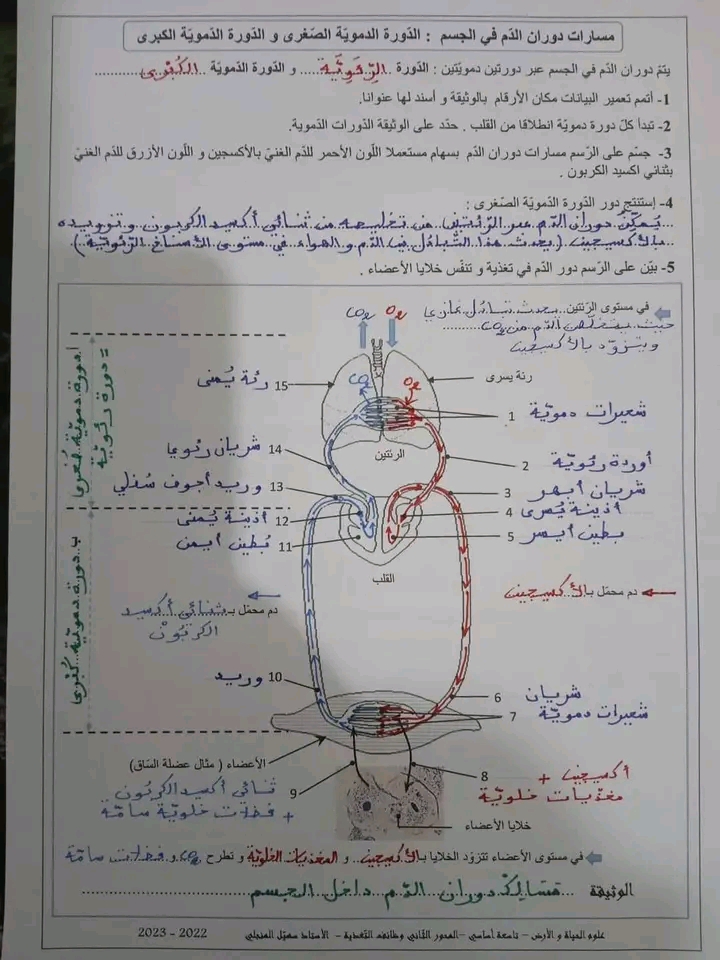 مسارات دوران الدّم في الجسم : الدّورة الدمويّة الصّغرى و الدّورة الدّمويّة الكبرى
يتمّ دوران الدّم في الجسم عبر دورتين دمويّتين : الدّورة ..الرِّئَوِيَّة.... و الدّورة الدّمويّة ..الكُبْرى..........
1- أتمم تعمير البيانات مكان الأرقام بالوثيقة و أسند لها عنوانا.
2- تبدأ كلّ دورة دمويّة انطلاقا من القلب . حدّد على الوثيقة الدّورات الدّموية.
3- جسّم على الرّسم مسارات دوران الدّم بسهام مستعملا اللّون الأحمر للدّم الغنيّ بالأكسجين و اللّون الأزرق للدّم الغنيّ
بثنائي اكسيد الكربون .
4- إستنتج دور الدّورة الدّمويّة الصّغرى :
...يُمكّن دوران الدّم عبر الرّئتين من تخليصه من ثنائي أكسيد الكربون و تزويده
..بالأكسيجين (يحدث هذا التّبادل بين الدّم و الهواء في مستوى الأسناخ الرّئويّة).
5- بيّن على الرّسم دور الدّم في تغذية و تنفّس خلايا الأعضاء .
في مستوى الرّئتين..يحدث تبادل غازي
حيث يتخلّص الدّم من CO2
و يتزوّد بالأكسيجين
CO2 O2
أ. دورة دمويّة صُغرى
= دورة رئويّة
رئة يُمنى 15
رئة يسرى
CO2 O2
1 شعيرات دمويّة
الرئتين
شريان رئوي 14
2 أوردة رئويّة
وريد أجوف سُفلي 13
3 شريان أبهر
أذينة يُمنى 12
4 أذينة يُسرى
بُطين أيمن 11
5 بطين أيسر
القلب
ب. دورة دمويّة كُبرى
دم محمّل بـ..ثنائي أكسيد
الكربُون
دم محمّل بـ الأكسيجين
وريد 10
6 شريان
7 شعيرات دمويّة
الأعضاء ( مثال عضلة السّاق)
9 ثنائي أكسيد الكربُون
+ فضلات خلويّة سامّة
8 أكسيجين +
مغذّيات خلويّة
خلايا الأعضاء
في مستوى الأعضاء تتزوّد الخلايا بـالأكسيجين.. و المغذيات الخلويّة و تطرح ..CO2 و..فضلات سامّة
الوثيقة ...مسالك دوران الدّم داخل الجسم...
علوم الحياة و الأرض – تاسعة أساسي – المحور الثّاني وظائف التّغذية – الأستاذ سهيل المنجلي 2022 - 2023